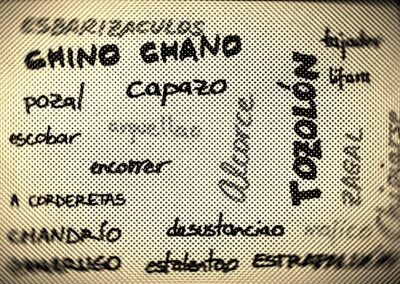 ESBARIZACULOS
CHINO CHANO
tajador
capazo
lifara
pozal
escobar
aquellao
Alcorce
TOZOLÓN
ZAGAL
encorrer
A CORDERETAS
CHANDRÍO
desustanciao
estalentao